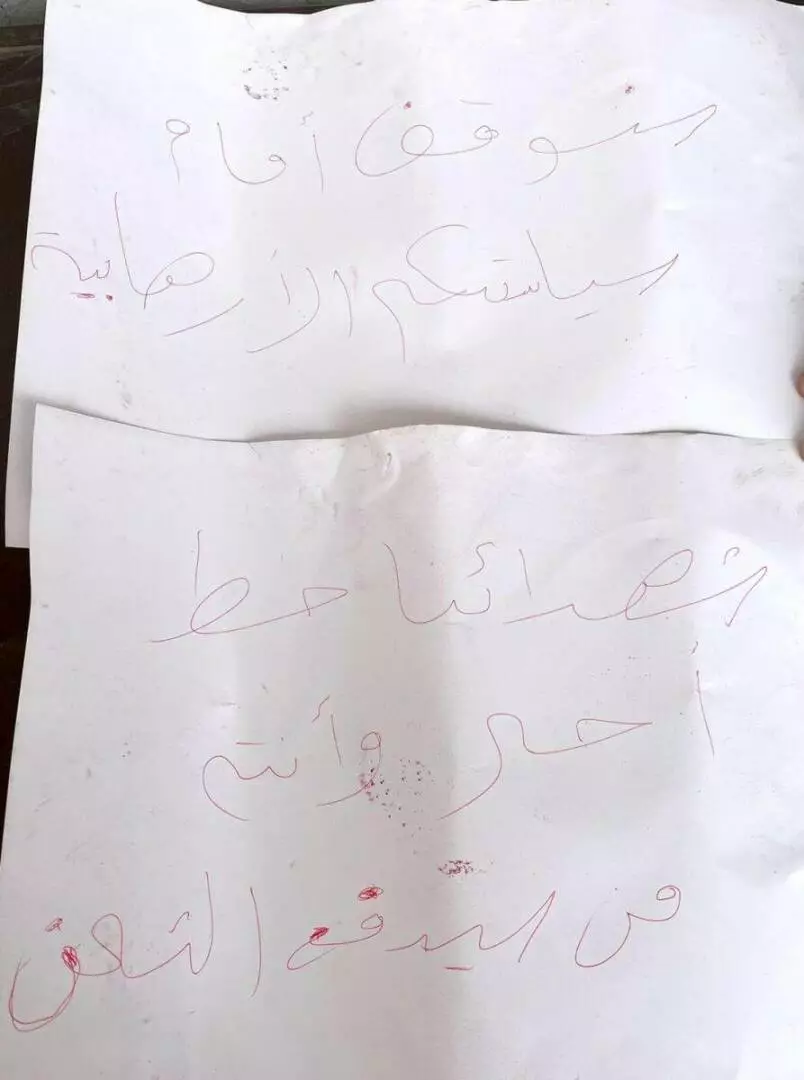 سنوقف أمام
سياستكم الأرهابية
شهدائنا خط
أحمر وأنتم
من سيدفع الثمن